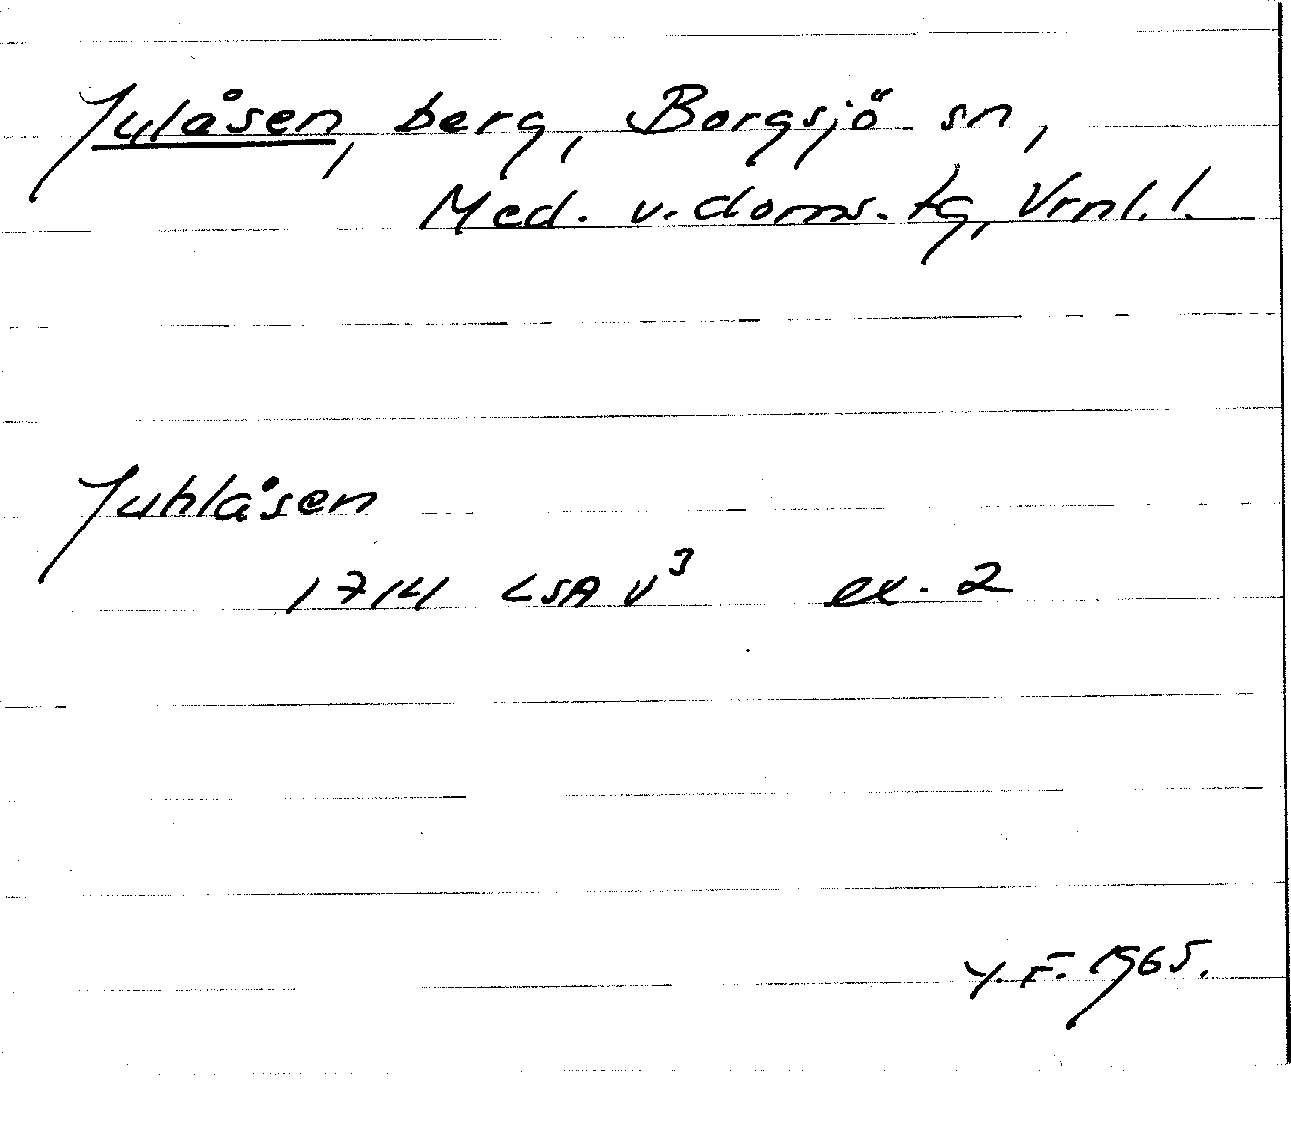 Julåsen, berg, Borgsjö sn,
Med. v. doms. tg, Vrnl. l.
Juhlåsen
1714 LSA V³ ex. 2
Y. F. 1965.